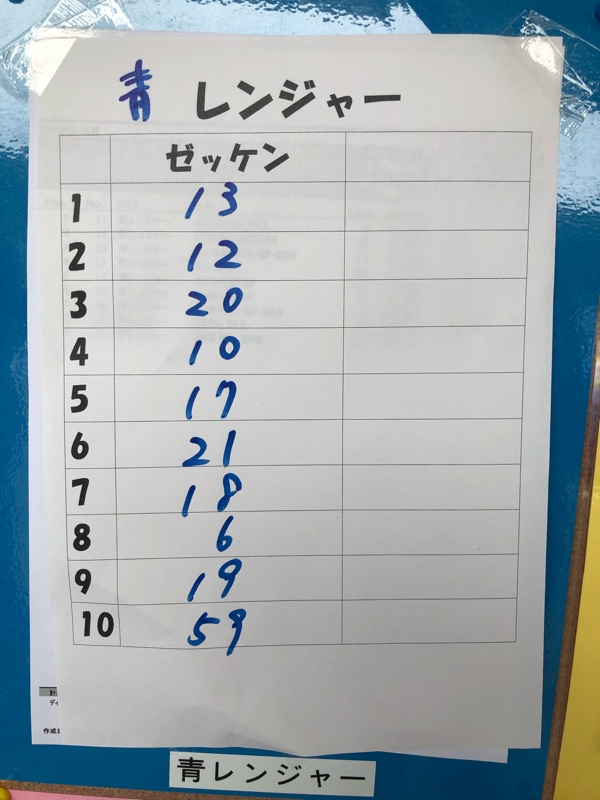 青 レンジャー
ゼッケン
1 13
2 12
3 20
4 10
5 17
6 21
7 18
8 6
9 19
10 59
計
ディ
作成日
青レンジャー